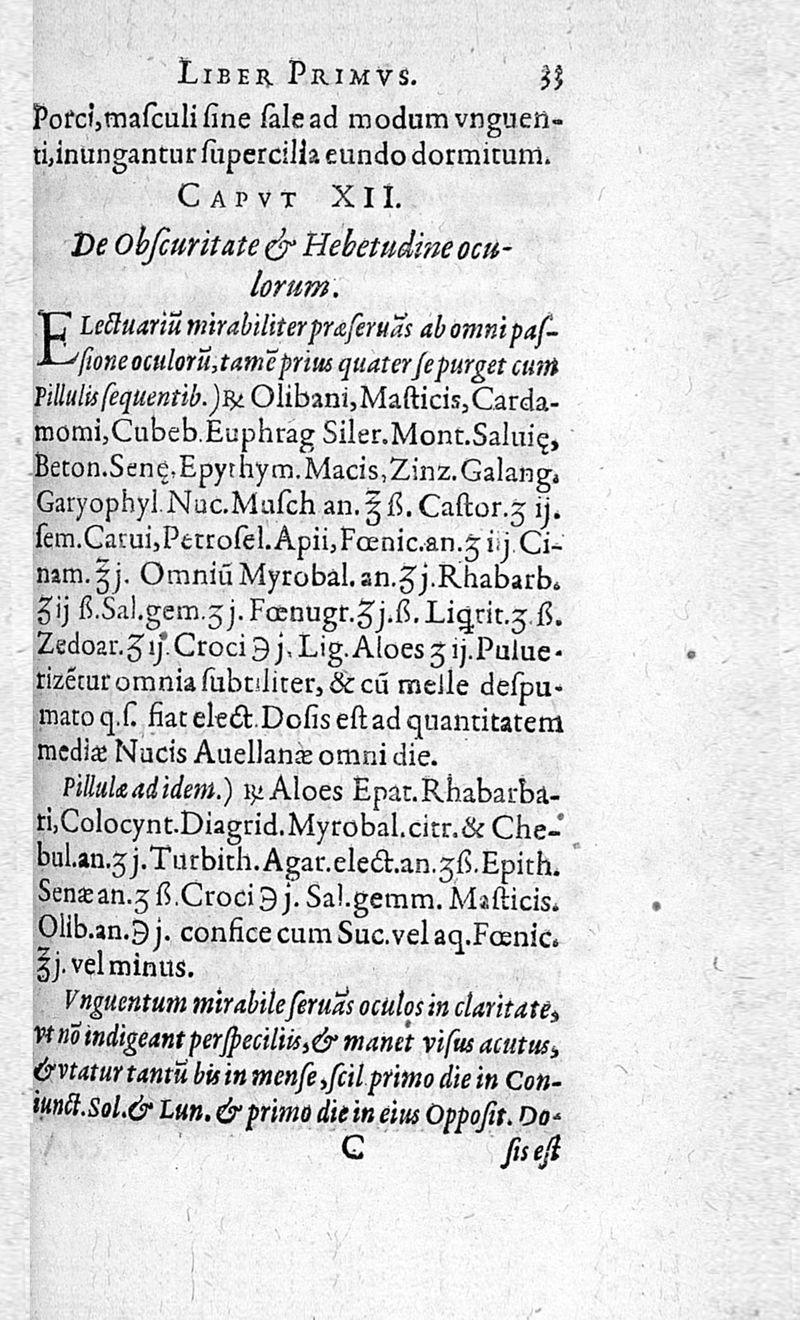 LIBER PRIMVS. 33
Porci, maſculi ſine ſale ad modum vnguen-
ti, inungantur ſupercilia eundo dormitum.
CAPVT XII.
De Obſcuritate & Hebetudine ocu-
lorum.
ELectuariũ mirabiliter præſeruãs ab omni paſ-
ſione oculorũ, tamẽ prius quater ſe purget cum
Pillulis ſequentib.) ℞ Olibani, Maſticis, Carda-
momi, Cubeb. Euphrag Siler. Mont. Saluię,
Beton. Senę. Epythym. Macis, Zinz. Galang.
Garyophyl. Nuc. Muſch an. ℥ ß. Caſtor. ʒ ij.
ſem. Carui, Petroſel. Apii, Fœnic. an. ʒ iij. Ci-
nam. ℥ j. Omniũ Myrobal. an. ℥ j. Rhabarb.
℥ ij ß. Sal. gem. ʒ j. Fœnugr. ℥ j. ß. Liqrit. ʒ. ß.
Zedoar. ℥ ij. Croci ℈ j. Lig. Aloes ʒ ij. Pulue-
rizẽtur omnia ſubtiliter, & cũ melle deſpu-
mato q. ſ. fiat elect. Doſis eſt ad quantitatem
mediæ Nucis Auellanæ omni die.
Pillulæ ad idem.) ℞ Aloes Epat. Rhabarba-
ri, Colocynt. Diagrid. Myrobal. citr. & Che-
bul. an. ʒ j. Turbith. Agar. elect. an. ʒ ß. Epith.
Senæ an. ʒ ß. Croci ℈ j. Sal. gemm. Maſticis.
Olib. an. ℈ j. confice cum Suc. vel aq. Fœnic.
℥ j. vel minus.
Vnguentum mirabile ſeruãs oculos in claritate,
vt nõ indigeant perſpeciliis, & manet viſus acutus,
& vtatur tantũ bis in menſe, ſcil primo die in Con-
iunct. Sol. & Lun. & primo die in eius Oppoſit. Do-
C ſis eſt